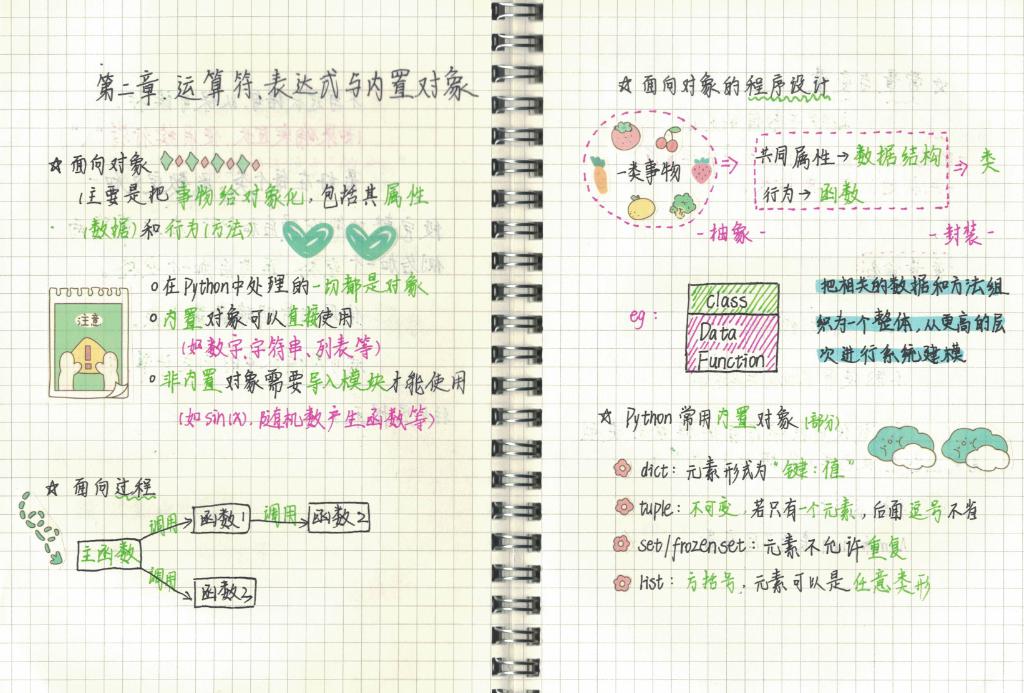 第二章.运算符、表达式与内置对象
☆ 面向对象
(主要是把事物给对象化,包括其属性
(数据)和行为(方法)
注意
○在Python中处理的一切都是对象
○内置对象可以直接使用
(如数字、字符串、列表等)
○非内置对象需要导入模块才能使用
(如sin(x),随机数产生函数等)
☆ 面向过程
主函数
调用
函数1
调用
函数2
调用
函数3
☆ 面向对象的程序设计
一类事物
⇒
共同属性→数据结构
行为→函数
⇒ 类
-抽象-
-封装-
eg:
class
Data
Function
把相关的数据和方法组
织为一个整体,从更高的层
次进行系统建模
☆ Python常用内置对象(部分)
dict:元素形式为“键:值”
tuple:不可变,若只有一个元素,后面逗号不省
set/frozenset:元素不允许重复
list:方括号,元素可以是任意类形